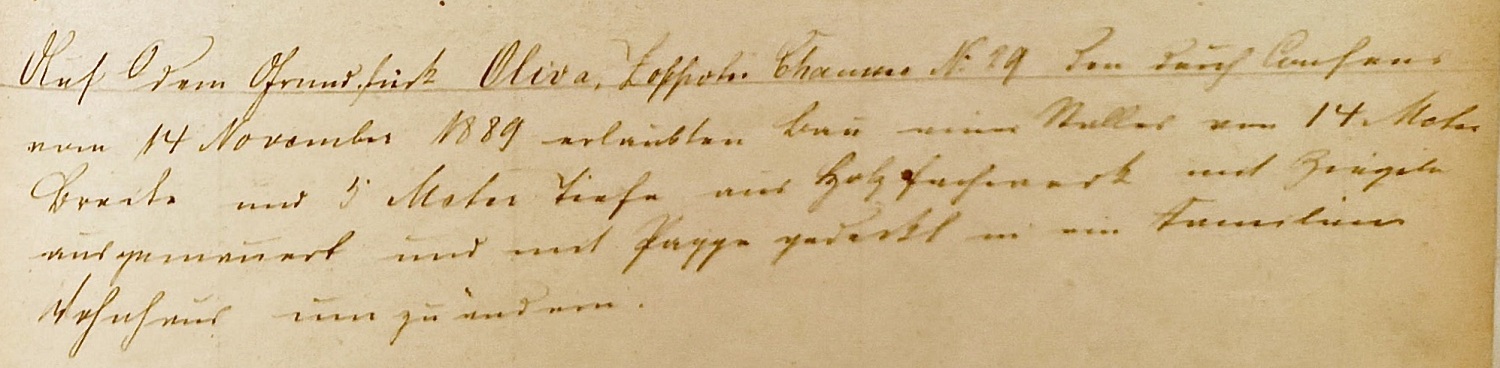 Auf dem Grundstück Oliva, Zoppoter Chaussee N. 29 den durch Consens
vom 14 November 1889 erlaubten Bau eines Stalles von 14 Meter
Breite und 5 Meter Tiefe aus Holzfachwerk mit Ziegeln
ausgemauert und mit Pappe gedeckt in ein Familien
Wohnhaus umzuändern.